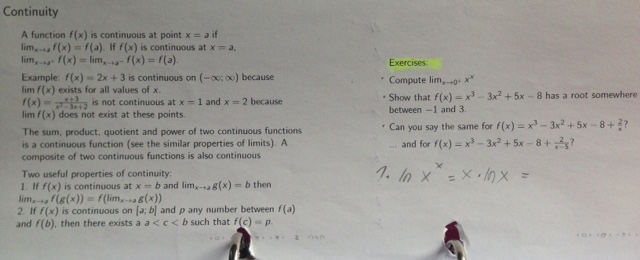 Continuity
A function f(x) is continuous at point x = a if
lim_{x→a} f(x) = f(a). If f(x) is continuous at x = a,
lim_{x→a⁺} f(x) = lim_{x→a⁻} f(x) = f(a).
Example: f(x) = 2x + 3 is continuous on (−∞; ∞) because
lim f(x) exists for all values of x.
f(x) = (x+3)/(x²−3x+2) is not continuous at x = 1 and x = 2 because
lim f(x) does not exist at these points.
The sum, product, quotient and power of two continuous functions
is a continuous function (see the similar properties of limits). A
composite of two continuous functions is also continuous
Two useful properties of continuity:
1. If f(x) is continuous at x = b and lim_{x→a} g(x) = b then
lim_{x→a} f(g(x)) = f(lim_{x→a} g(x))
2. If f(x) is continuous on [a; b] and p any number between f(a)
and f(b), then there exists a a < c < b such that f(c) = p.
Exercises:
Compute lim_{x→0⁺} x^x
Show that f(x) = x³ − 3x² + 5x − 8 has a root somewhere
between −1 and 3.
Can you say the same for f(x) = x³ − 3x² + 5x − 8 + 2/x?
... and for f(x) = x³ − 3x² + 5x − 8 + 2/(x−5)?
1. ln x^x = x · ln x =